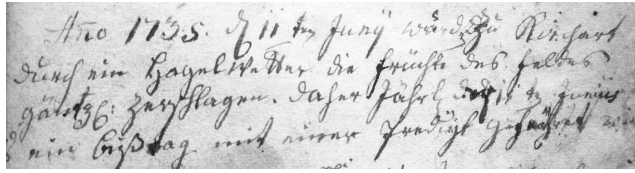 Año 1735. d 11ten Junÿ wurde zu Kirchart
durch ein Hagelwetter die früchte des feldes
gäntzl: zerschlagen. daher Jährl: der 11te Junius
ein bußtag mit einer Predigt gefeÿret